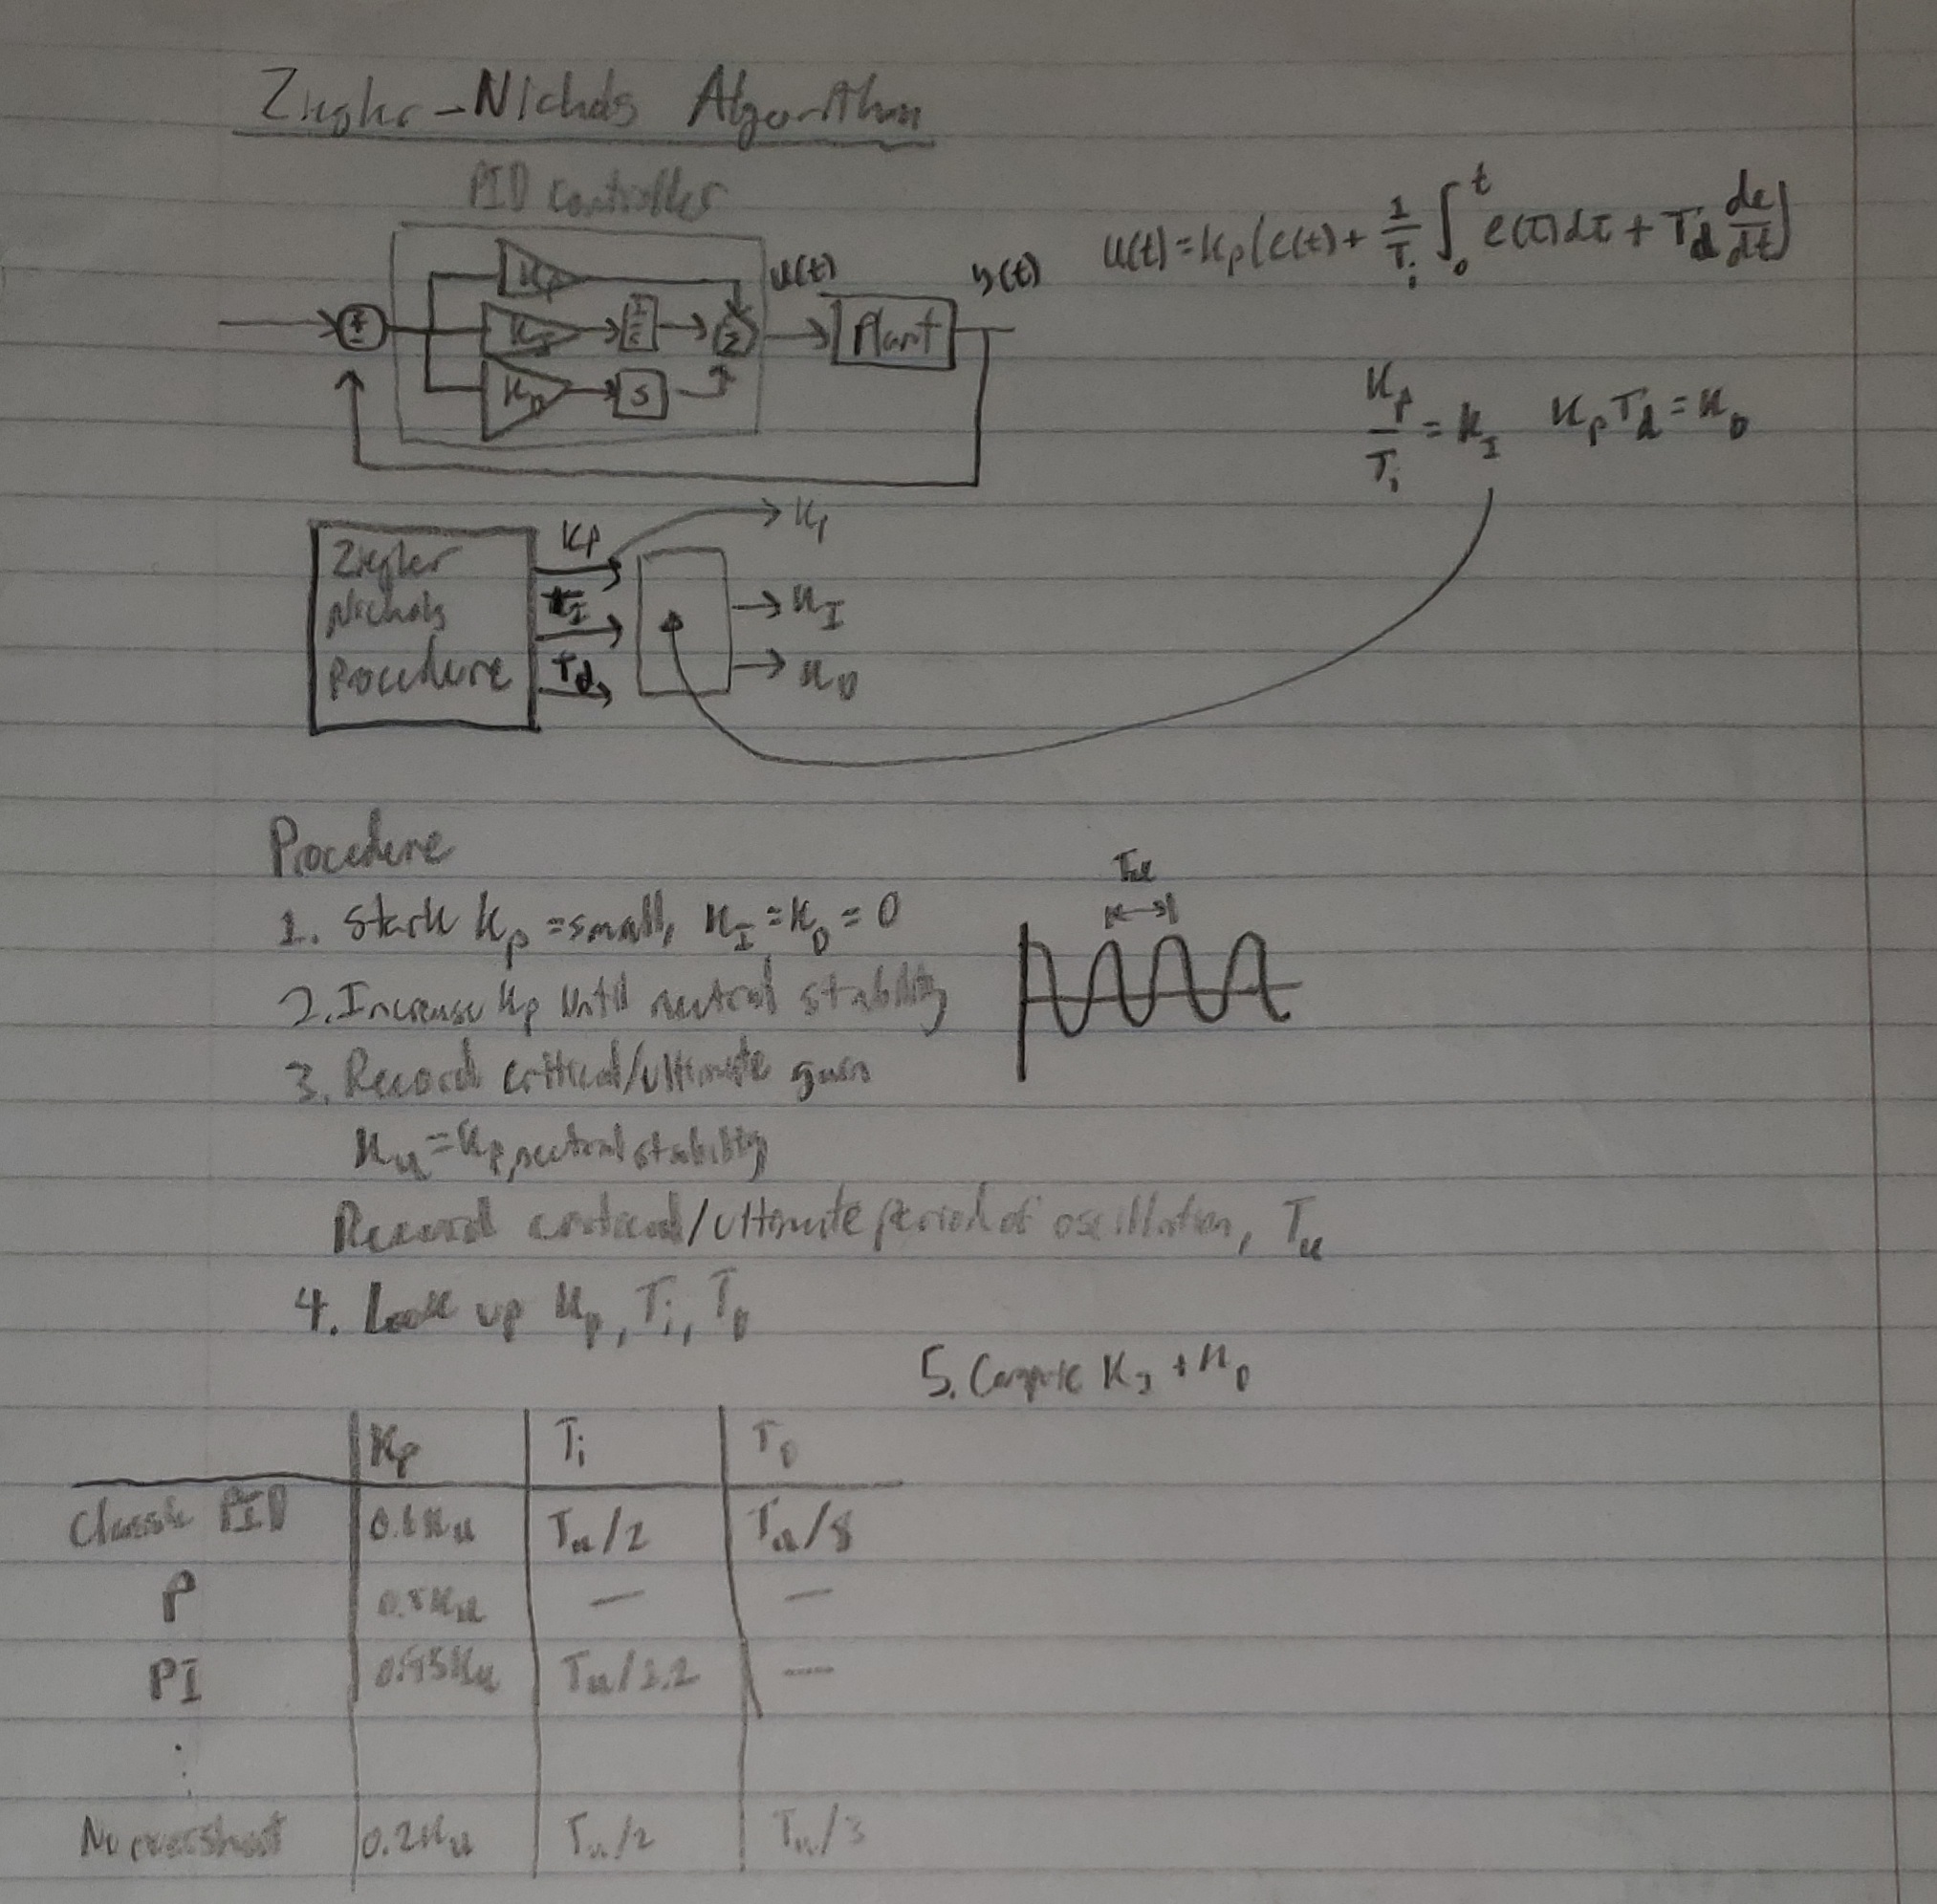 Ziegler-Nichols Algorithm
PID Controller
u(t)=Kp(e(t)+ 1/Ti ∫₀ᵗ e(τ)dτ + Td de/dt)
Kp
u(t)
y(t)
±
KI
1/s
Σ
Plant
KD
s
Kp/Ti = KI   KpTd = KD
Ziegler
Nichols
Procedure
Kp
TI
Td
Kp
KI
KD
Procedure
1. Start Kp = small, KI = KD = 0
2. Increase Kp until neutral stability
Tu
3. Record critical/ultimate gain
Ku = Kp,neutral stability
Record critical/ultimate period of oscillation, Tu
4. Look up Kp, Ti, TD
5. Compute KI + KD
Kp Ti TD
Classic PID 0.6Ku Tu/2 Tu/8
P 0.5Ku — —
PI 0.45Ku Tu/1.2 —
No overshoot 0.2Ku Tu/2 Tu/3